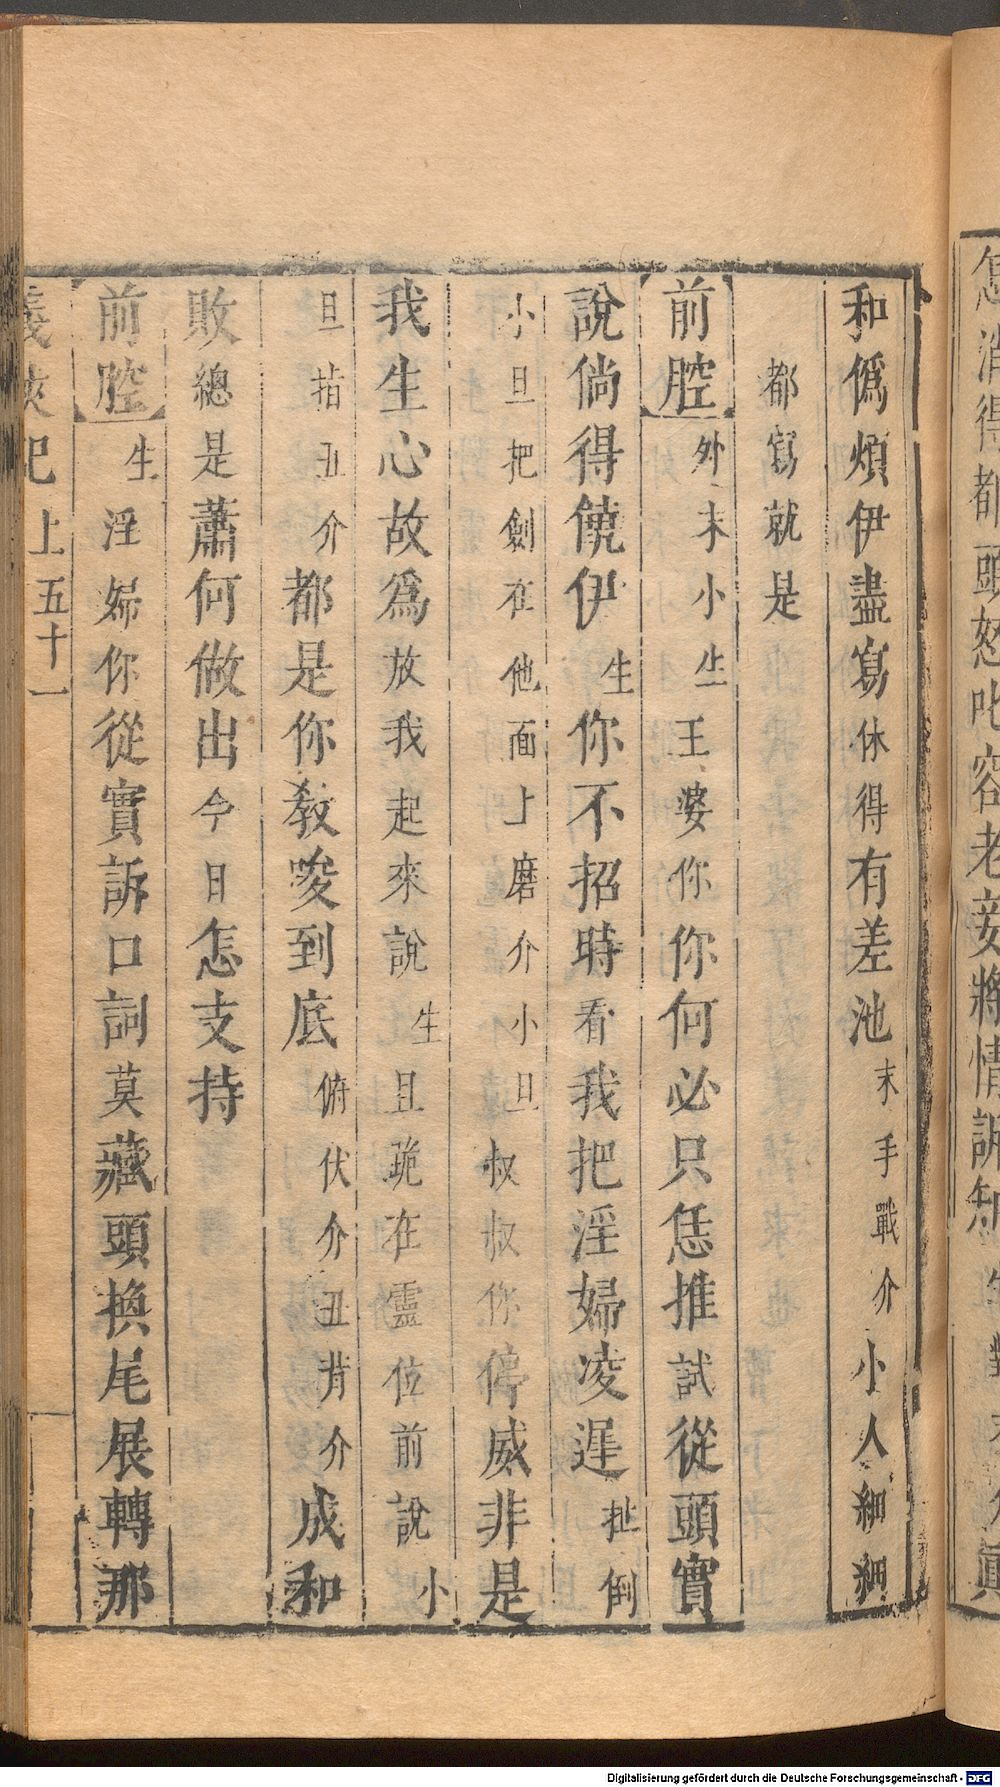 怎消得都頭怒叱容老妾將情訴知
和僞煩伊盡寫休得有差池末手戰介小人細細
都寫就是
前腔外末小生王婆你你何必只恁推試從頭實
說倘得饒伊生你不招時看我把淫婦凌遲扯倒
小旦把劍在他面上磨介小旦叔叔你停威非是
我生心故爲放我起來說生且跪在靈位前說小
旦指丑介都是你教唆到底俯伏介丑背介成和
敗總是蕭何做出今日怎支持
前腔生淫婦你從實訴口詞莫藏頭換尾展轉那
義俠記上五十一
Digitalisierung gefördert durch die Deutsche Forschungsgemeinschaft - DFG